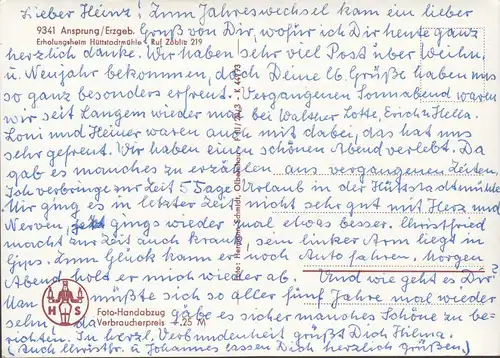 Lieber Heinz! Zum Jahreswechsel kam ein lieber
9341 Ansprung/Erzgeb. Gruß von Dir, wofür ich Dir heute ganz
Erholungsheim Hüttstadtmühle • Ruf Zöblitz 219
herzlich danke. Wir haben sehr viel Post über Weihn.
u. Neujahr bekommen, doch Deine lb. Grüße haben uns
so ganz besonders erfreut. Vergangenen Sonnabend waren
wir seit Langem wieder mal bei Walther Lotte, Erich u. Hella.
Loni und Heiner waren auch mit dabei, das hat uns
sehr gefreut. Wir haben einen schönen Abend verlebt. Da
gab es manches zu erzählen aus vergangenen Zeiten.
Ich verbringe zur Zeit 5 Tage Urlaub in der Hüttstadtmühle.
Mir ging es in letzter Zeit nicht sehr gut mit Herz und
Nerven, jetzt gings wieder mal etwas besser. Christfried
macht zur Zeit auch krank, sein linker Arm liegt in
Gips. Zum Glück kann er noch Auto fahren. Morgen
Abend holt er mich wieder ab. Und wie geht es Dir?
Man müßte sich so aller fünf Jahre mal wieder
sehn! da gäbe es sicher manches Schöne zu be-
richten. In herzl. Verbundenheit grüßt Dich Hilma.
(Auch Christfr. u. Johannes lassen Dich herzlich grüßen.)
H S
Foto-Handabzug
Verbraucherpreis -,25 M